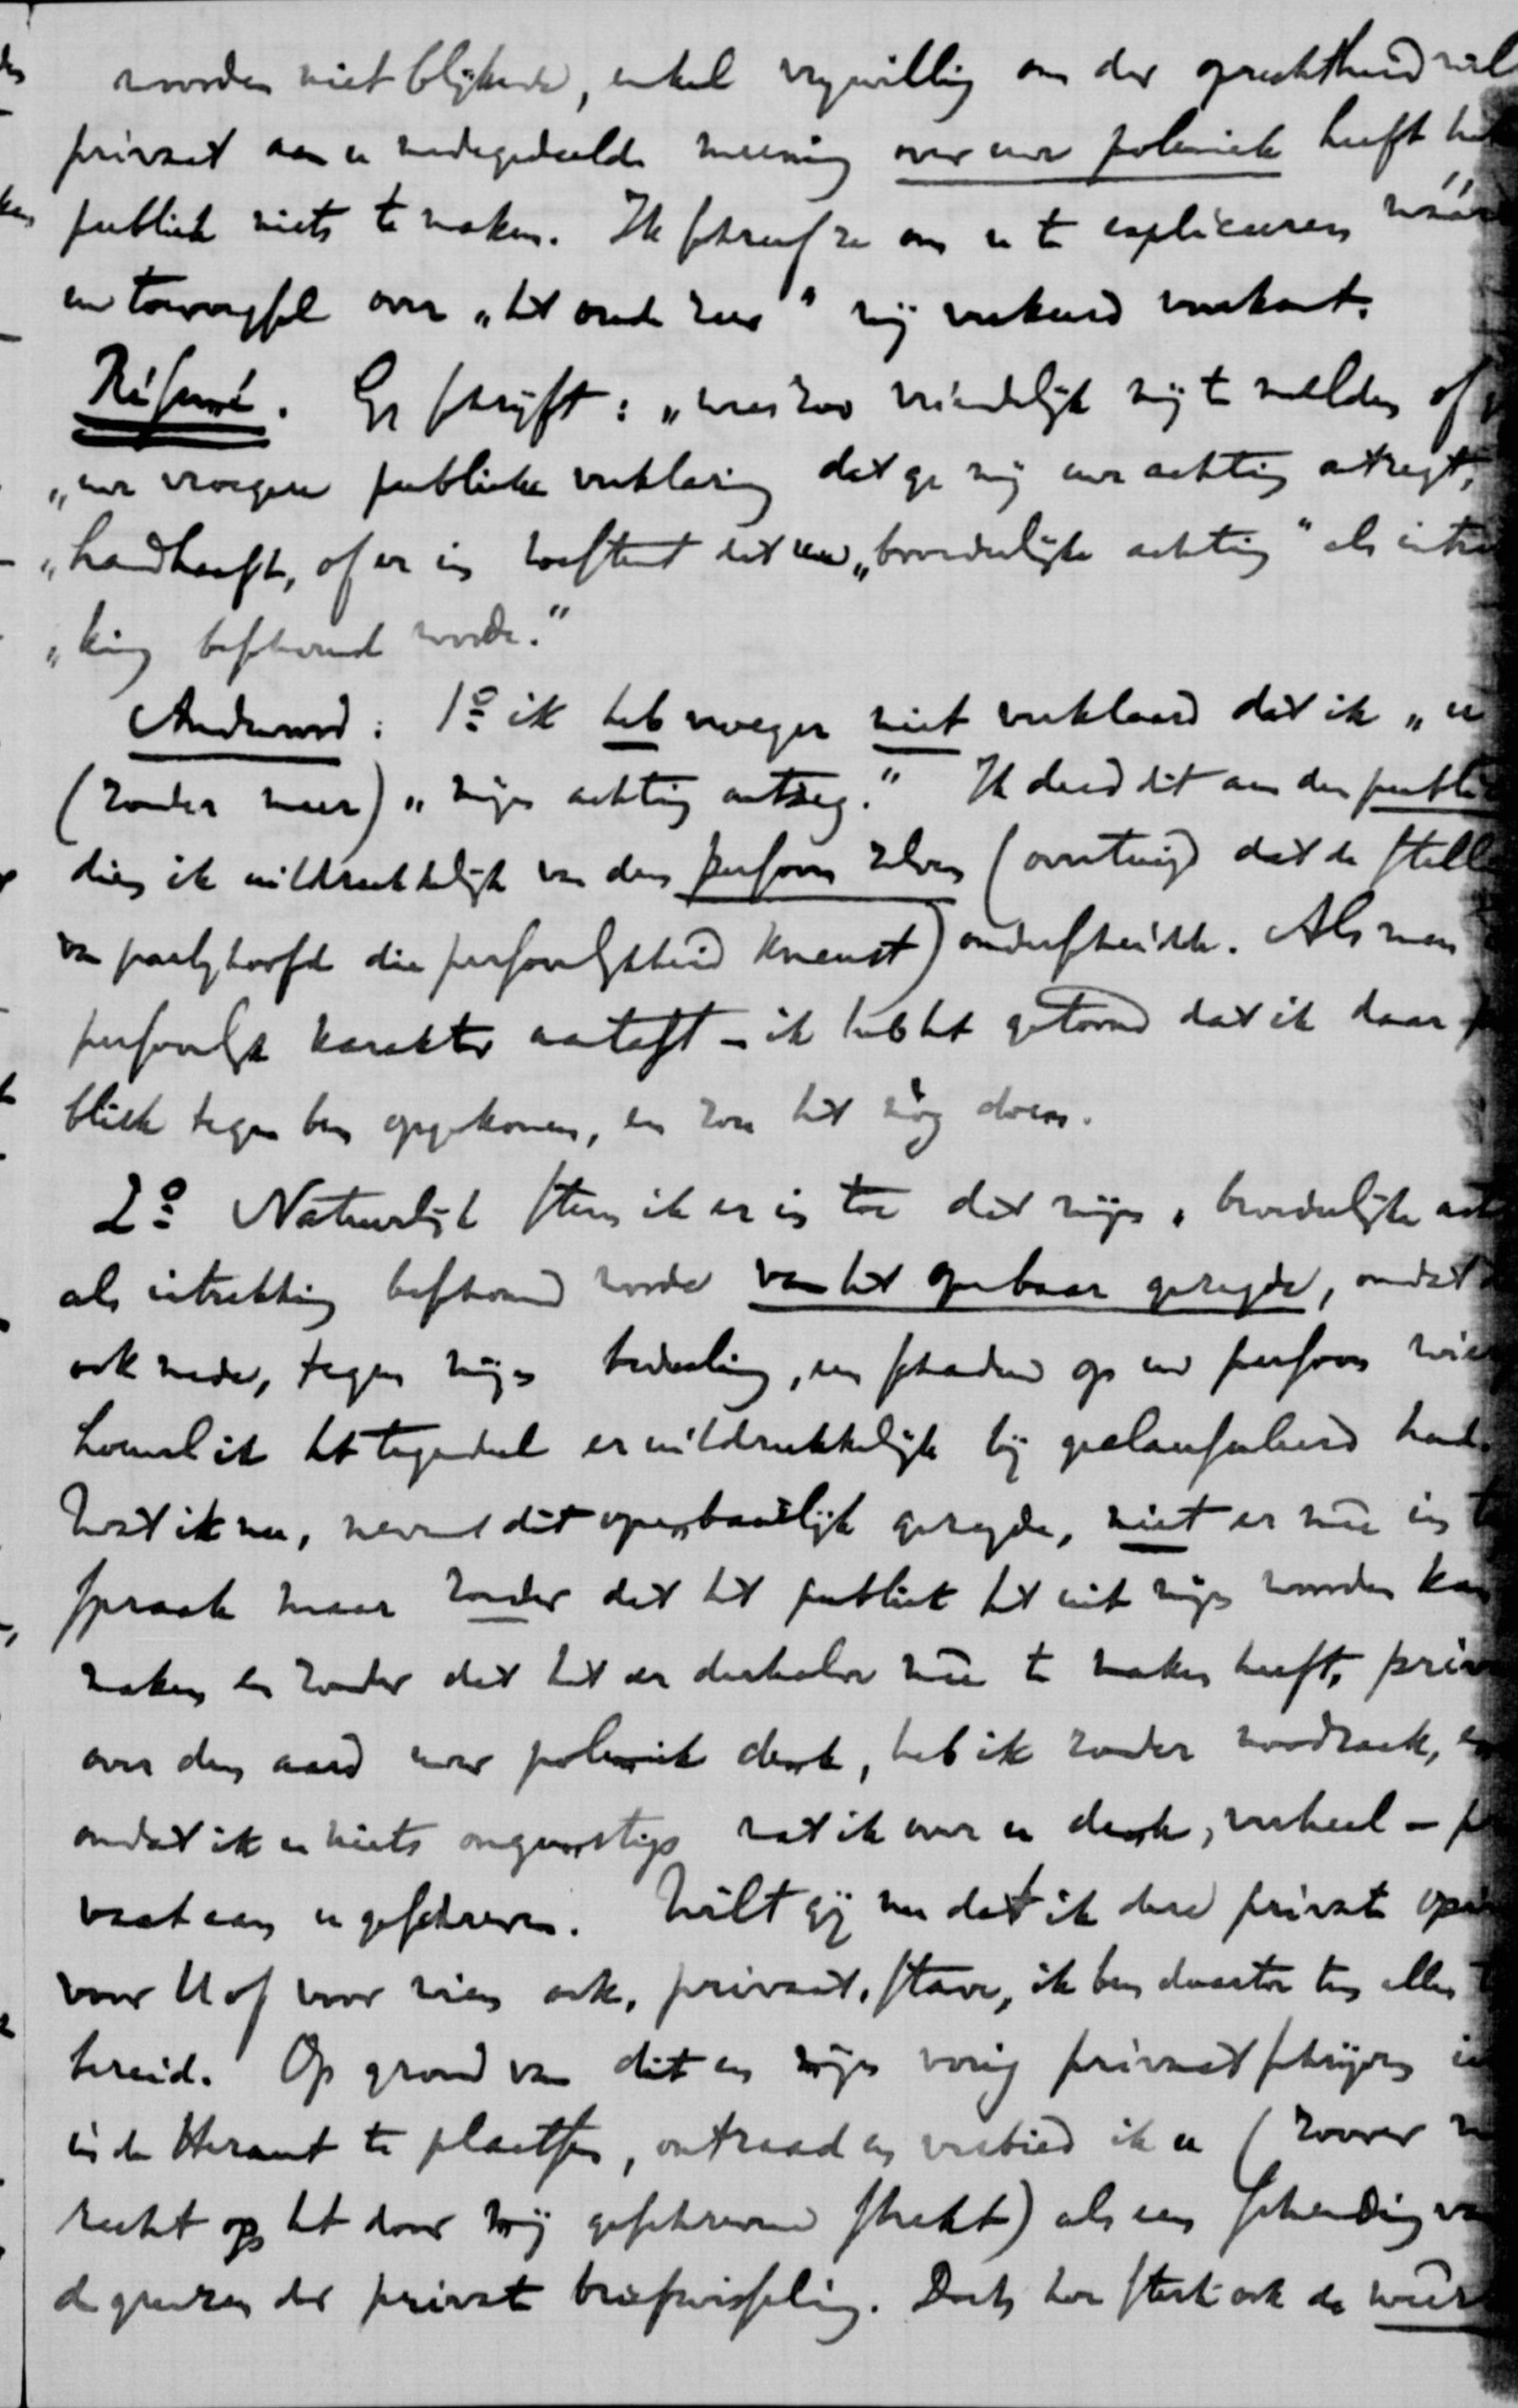 woorden niet blijkende, enkel vrywillig om der oprechtheid wil
privaat aan u medegedeelde meening over uw polemiek heeft het
publiek niets te maken. Ik schreef ze om u te expliceeren wáár
uw toevoegsel over „het oude zeer" mij verkeerd voorkomt.
Résumé. Ge schryft: „wees zoo vriendelijk mij te melden of
„uw vroegere publieke verklaring dat ge mij uw achting ontzegt,
„handhaaft, of er in toestemt dat uw „broederlijke achting" als intrek
„king beschouwd worde."
Andwoord: 1º ik heb vroeger niet verklaard dat ik „u
(zonder meer) „mijn achting ontzeg." Ik deed dit aan den
dien ik uitdrukkelijk van den persoon zelven (overtuigd dat de
van partyhoofd die persoonlykheid kneust) onderscheidde. Als men
persoonlyk karakter aantast – ik heb het getoond dat ik daar
bliek tegen ben opgekomen, en zou het nóg doen.
2º Natuurlijk stem ik er in toe dat mijn „broederlijke
als intrekking beschouwd worde van het openbaar gezegde, omdat
ook mede, tegen mijn bedoeling, een schaduw op uw persoon
hoewel ik het tegendeel er uitdrukkelijk bij geclausuleerd had.
Wat ik nu, nevens dit openbaarlijk gezegde, niet er méé in
spraak maar zonder dat het publiek het uit mijn woorden kan
maken en zonder dat het er derhalve méé te maken heeft,
over den aard uwer polemiek denk, heb ik zonder noodzaak,
omdat ik u niets ongunstigs wat ik over u denk, verheel –
vaat aan u geschreven. Wilt gij nu dat ik deze private
voor U of voor wien ook, privaat, stave, ik ben daartoe ten allen
bereid. Op grond van dit en mijn vorig privaat schrijven
in de Heraut te plaatsen, ontraad en verbied ik u (zoover
recht op het door mij geschrevene strekt) als een schending van
de grenzen der private briefwisseling. Doch hoe sterk ook de